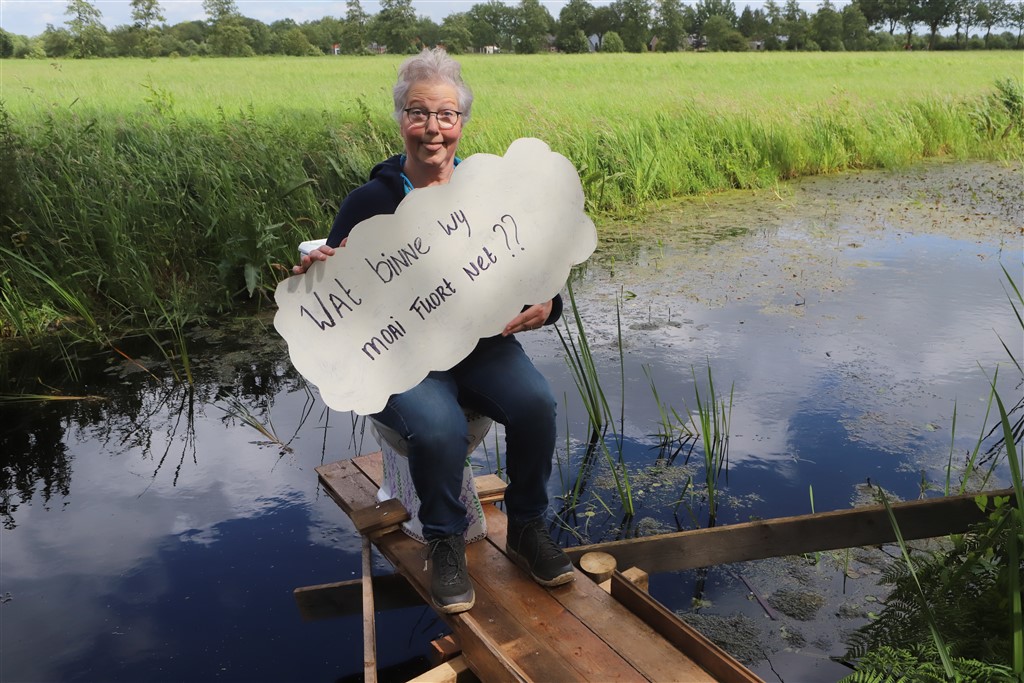 Wat binne wy
moai Fuort Net ??